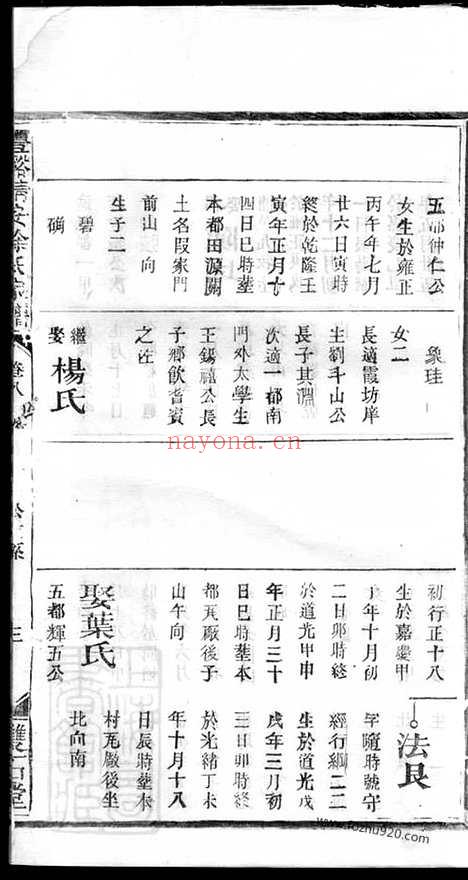 五都仲仁公
女生於雍正
丙午年七月
廿六日寅時
終於乾隆壬
寅年正月十
四日巳時塟
本都田源關
土名段家門
前山 向
生子二公次
碧
碃
象珪
女二
長適霞坊庠
生劉斗山公
長子其淵
次適一都南
門外太學生
王錫禧公長
子鄉飲耆賓
之注
繼娶楊氏
初行正十八
生於嘉慶甲
年十月初
二日卯時終
於道光甲申
年正月三十
日巳時塟本
都瓦廠後子
山午向
娶葉氏
五都輝五公
法良
字隨時號守
經行綱二二
生於道光戊
戌年三月初
三日卯時終
於光緒丁未
年十月十八
日辰時塟本
村瓦廠後坐
北向南
徐氏宗譜
卷八
雙石堂
nayona.cn
www.fozhu920.com